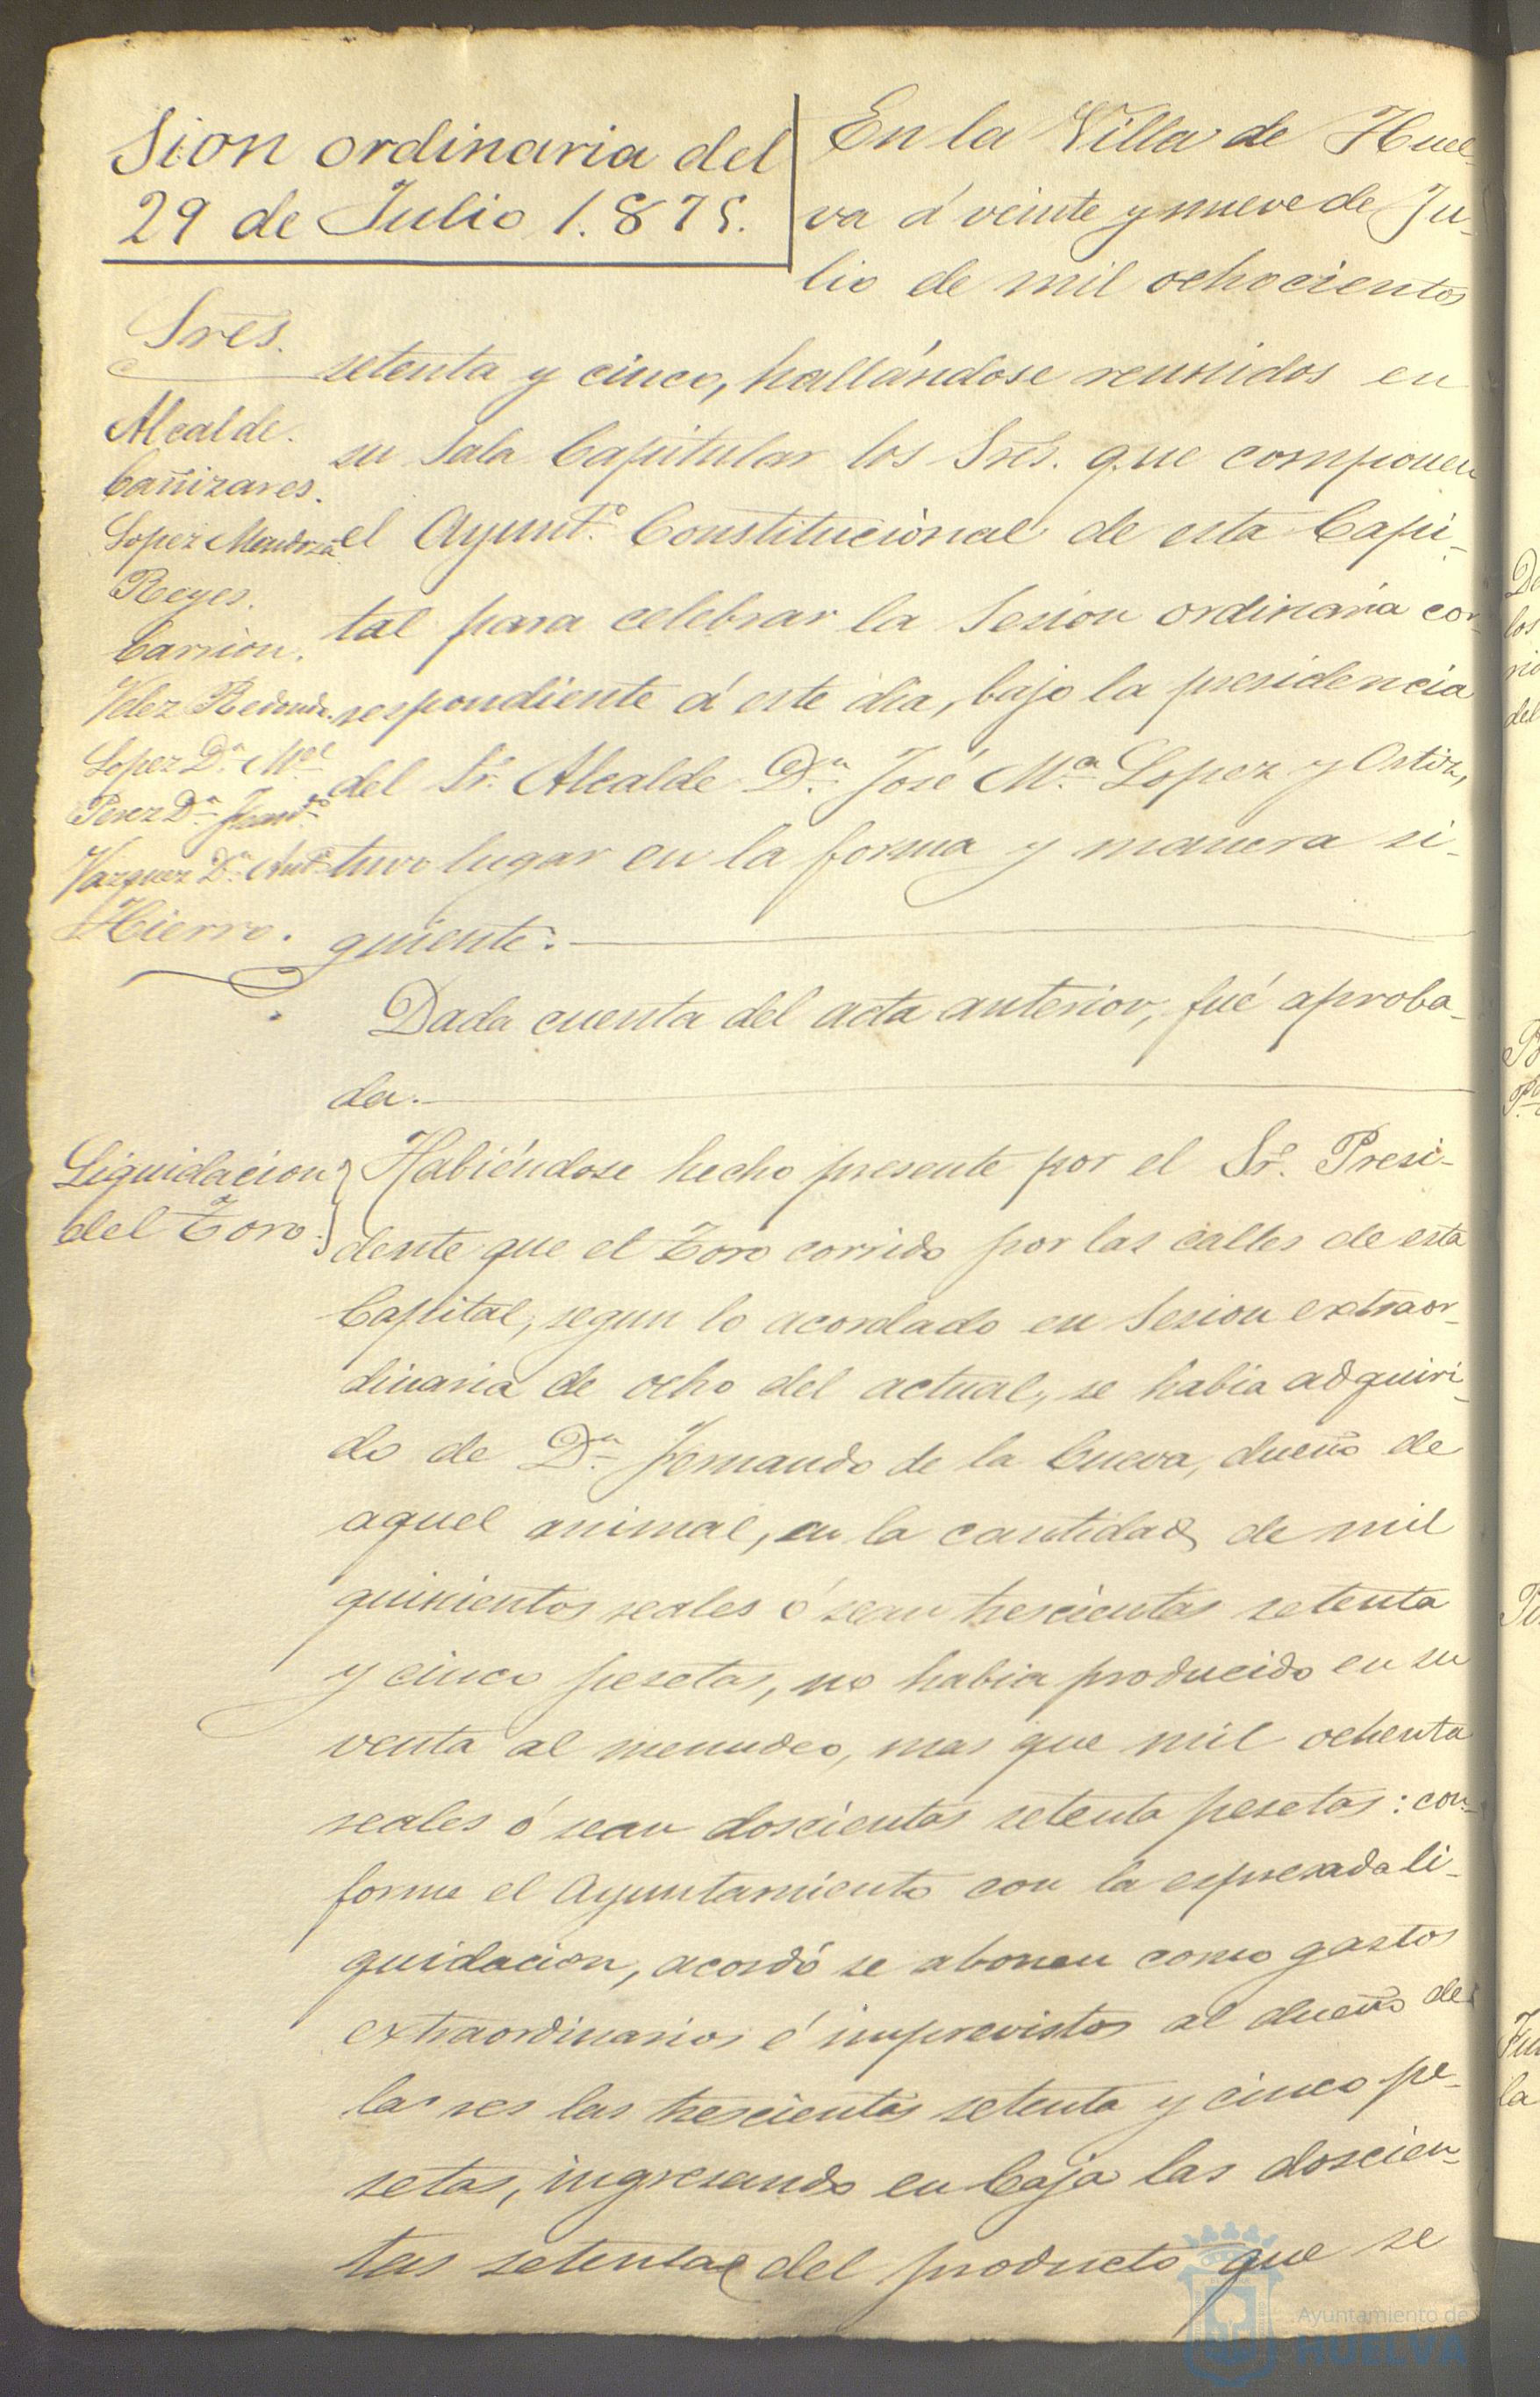 Sion ordinaria del
29 de Julio 1.875.
En la Villa de Huel-
va á veinte y nueve de Ju-
lio de mil ochocientos
Sres.
Alcalde.
Cañizares.
Lopez Mendoza
Reyes.
Carrion.
Velez Redondo.
Lopez Dn. Mel
Perez Dn. Franco
Vazquez Dn. Anto
Hierro.
setenta y cinco, hallándose reunidos en
su Sala Capitular los Sres. que componen
el Ayunto. Constitucional de esta Capi-
tal para celebrar la Sesion ordinaria cor-
respondiente á este dia, bajo la presidencia
del Sr. Alcalde Dn. José Ma. Lopez y Ortiz,
tuvo lugar en la forma y manera si-
guiente:
Dada cuenta del acta anterior, fué aproba-
da.
Liquidacion
del Toro.
Habiéndose hecho presente por el Sr. Presi-
dente que el Toro corrido por las calles de esta
Capital, segun lo acordado en Sesion extraor-
dinaria de ocho del actual, se habia adquiri-
do de Dn. Fernando de la Cueva, dueño de
aquel animal, en la cantidad de mil
quinientos reales ó sean trescientas setenta
y cinco pesetas, no habia producido en su
venta al menudeo, mas que mil ochenta
reales ó sean doscientas setenta pesetas: con-
forme el Ayuntamiento con la espresada li-
quidacion, acordó se abonen como gastos
extraordinarios é imprevistos al dueño de
la res las trescientas setenta y cinco pe-
setas, ingresando en Caja las doscien-
tas setenta del producto que se
Ayuntamiento de
HUELVA